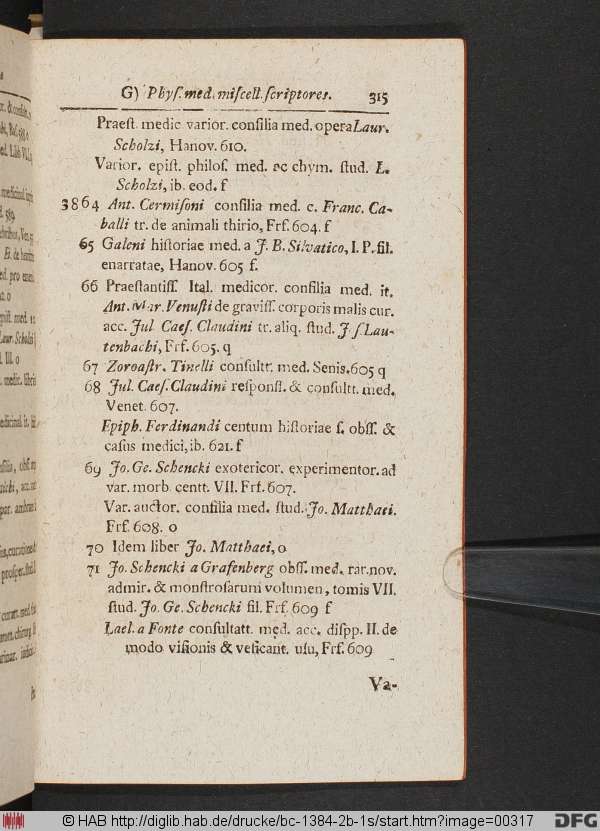 G) Phyſ. med. miſcell. ſcriptores. 315
Praeſt. medic varior. conſilia med. opera Laur.
Scholzi, Hanov. 610.
Varior. epiſt. philoſ. med. ac chym. ſtud. L.
Scholzi, ib. eod. f
3864 Ant. Cermiſoni conſilia med. c. Franc. Ca-
balli tr. de animali thirio, Frf. 604. f
65 Galeni hiſtoriae med. a J. B. Silvatico, I. P. fil.
enarratae, Hanov. 605 f.
66 Praeſtantiſſ. Ital. medicor. conſilia med. it.
Ant. Mar. Venuſti de graviſſ. corporis malis cur.
acc. Jul Caeſ. Claudini tr. aliq. ſtud. J. ſ. Lau-
tenbachi, Frf. 605. q
67 Zoroaſtr. Tinelli conſultt. med. Senis. 605 q
68 Jul. Caeſ. Claudini reſponſſ. & conſultt. med.
Venet. 607.
Epiph. Ferdinandi centum hiſtoriae ſ. obſſ. &
caſus medici, ib. 621. f
69 Jo. Ge. Schencki exotericor. experimentor. ad
var. morb centt. VII. Frf. 607.
Var. auctor. conſilia med. ſtud. Jo. Matthaei.
Frf. 608. o
70 Idem liber Jo. Matthaei, o
71 Jo. Schencki a Grafenberg obſſ. med. rar. nov.
admir. & monſtroſarum volumen, tomis VII.
ſtud. Jo. Ge. Schencki fil. Frf. 609 f
Lael. a Fonte conſultatt. med. acc. diſpp. II. de
modo viſionis & veſicant. uſu, Frf. 609
Va-
© HAB http://diglib.hab.de/drucke/bc-1384-2b-1s/start.htm?image=00317
DFG